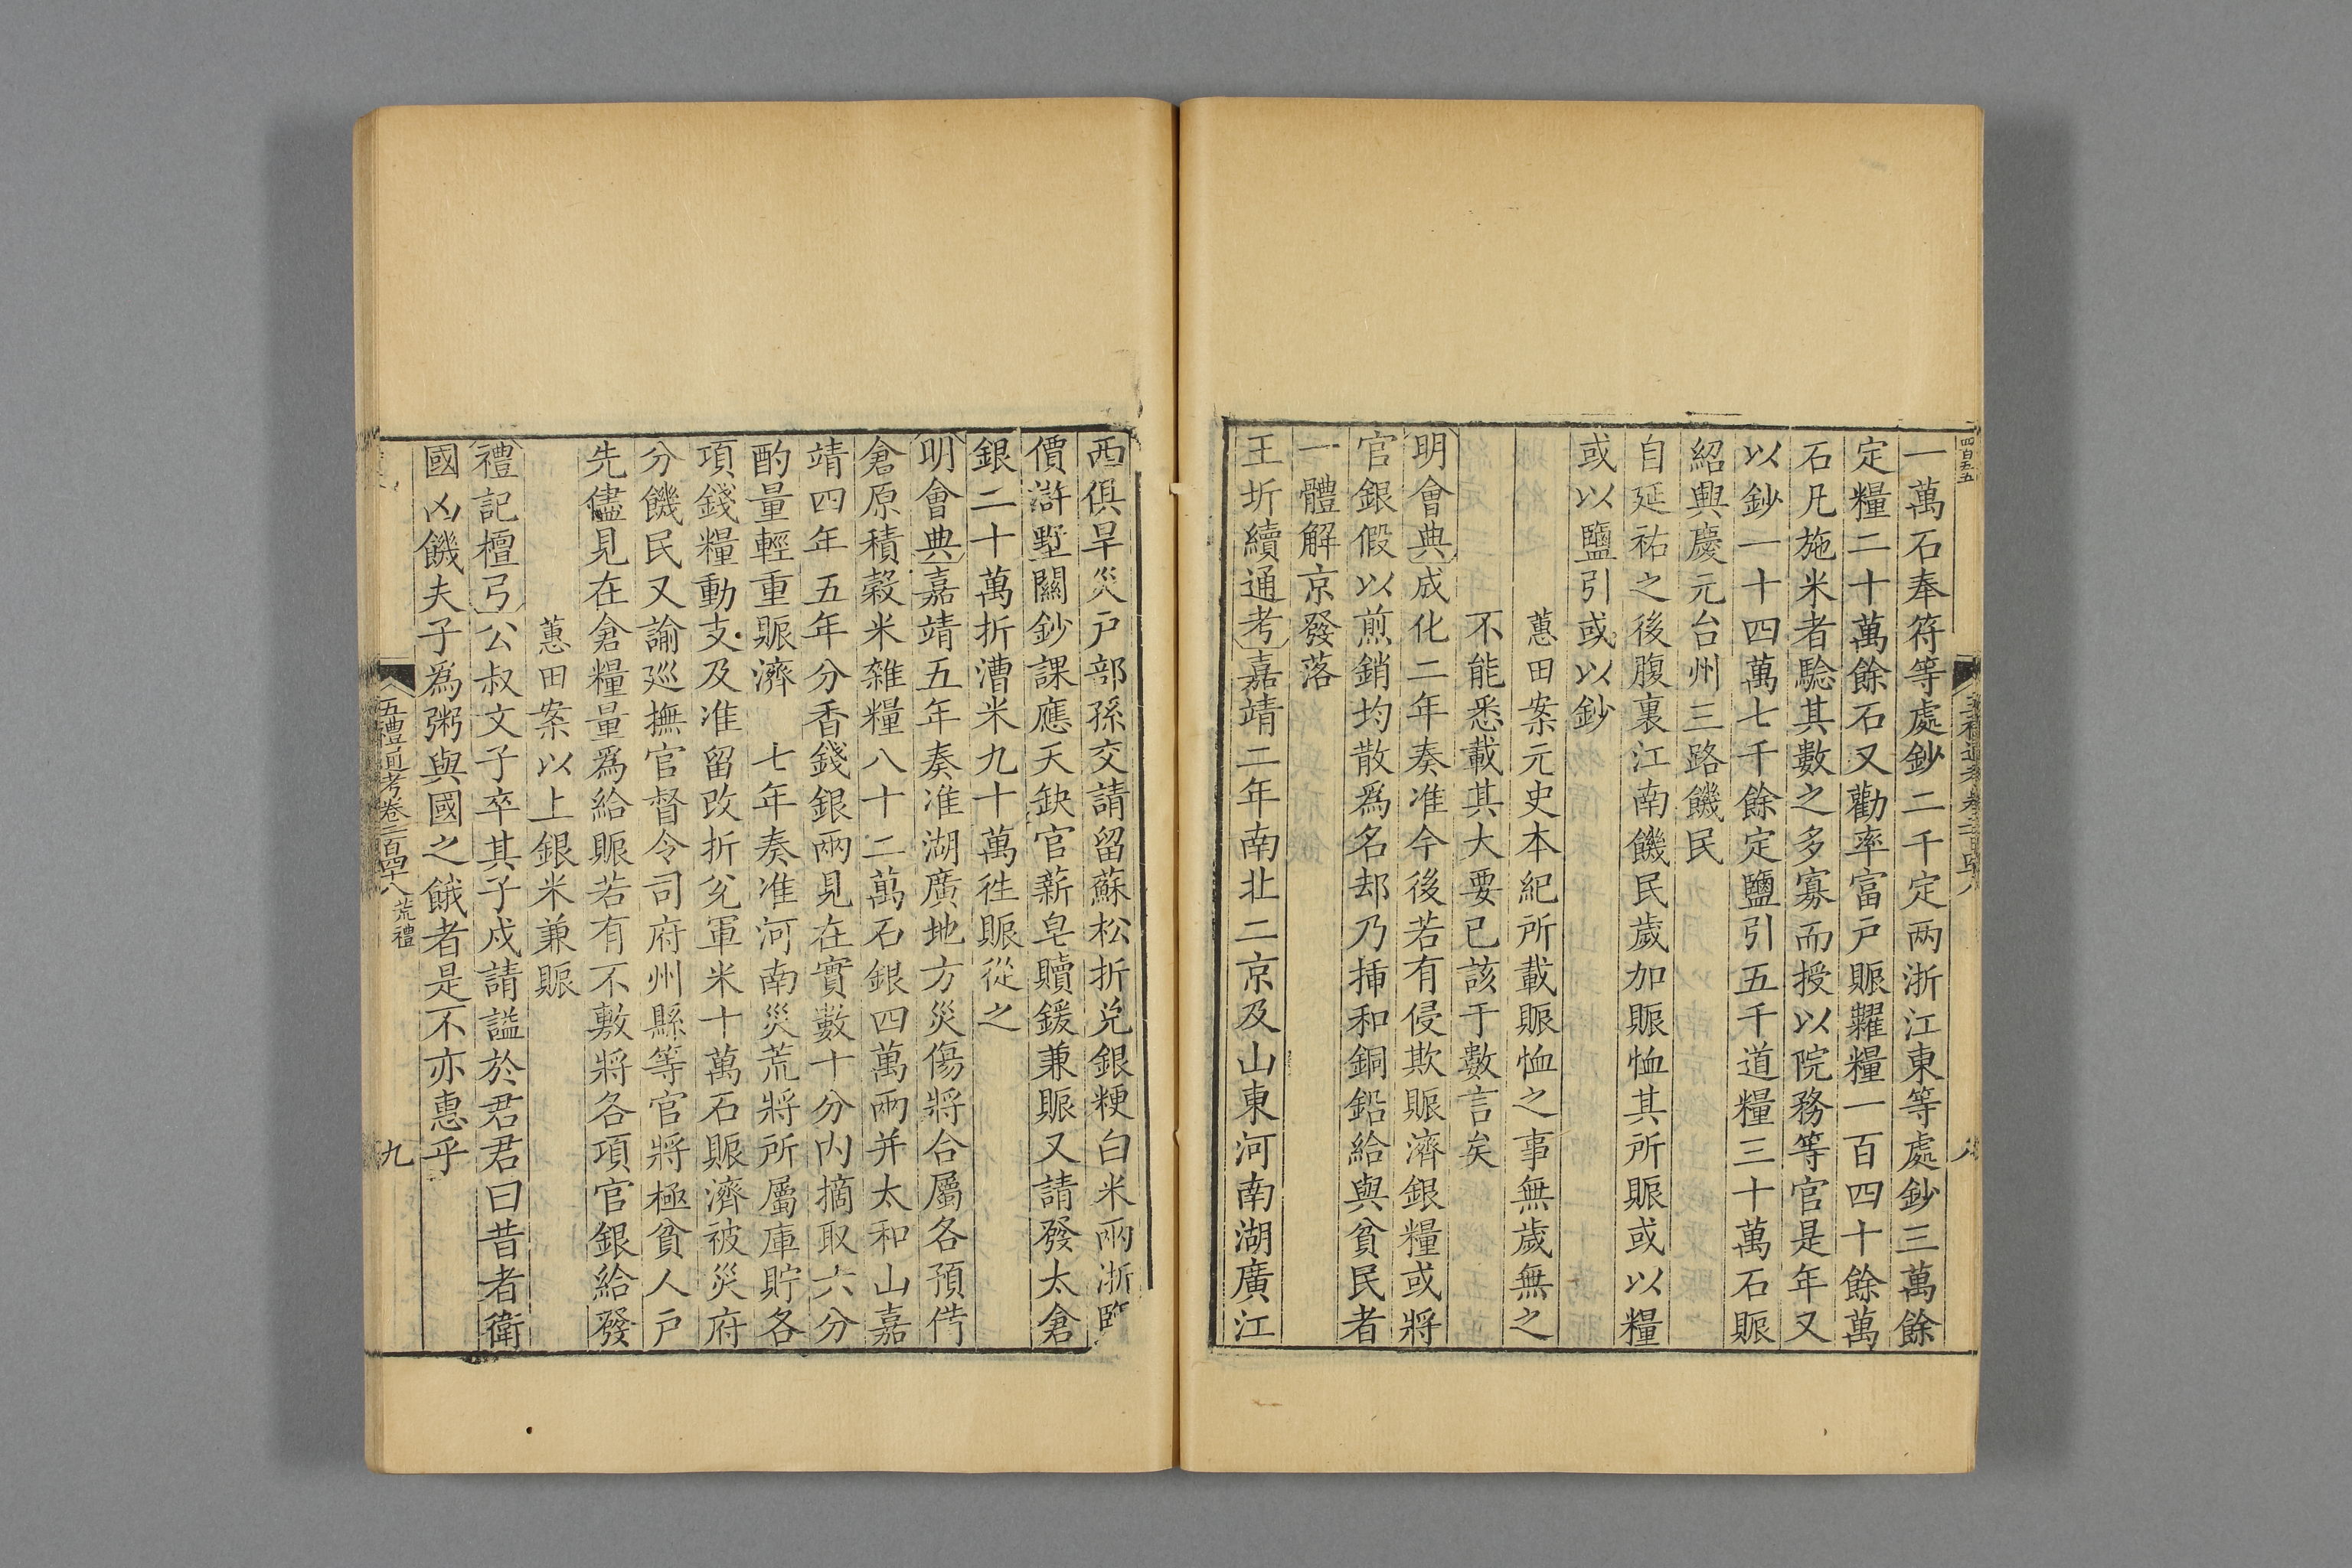 四百五五
一萬石奉符等處鈔二千定兩浙江東等處鈔三萬餘
定糧二十萬餘石又勸率富戶賑糶糧一百四十餘萬
石凡施米者驗其數之多寡而授以院務等官是年又
以鈔一十四萬七千餘定鹽引五千道糧三十萬石賑
紹興慶元台州三路饑民
自延祐之後腹裏江南饑民歲加賑恤其所賑或以糧
或以鹽引或以鈔
蕙田案元史本紀所載賑恤之事無歲無之
不能悉載其大要已該于數言矣
明會典成化二年奏准今後若有侵欺賑濟銀糧或將
官銀假以煎銷均散爲名却乃插和銅鉛給與貧民者
一體解京發落
王圻續通考嘉靖二年南北二京及山東河南湖廣江
西俱旱災戶部孫交請留蘇松折兌銀粳白米兩浙鹽
價滸墅關鈔課應天缺官薪皂贖鍰兼賑又請發太倉
銀二十萬折漕米九十萬徃賑從之
明會典嘉靖五年奏准湖廣地方災傷將合屬各預俻
倉原積穀米雜糧八十二萬石銀四萬兩并太和山嘉
靖四年五年分香錢銀兩見在實數十分內摘取六分
酌量輕重賑濟 七年奏准河南災荒將所屬庫貯各
項錢糧動支及准留改折兌軍米十萬石賑濟被災府
分饑民又諭廵撫官督令司府州縣等官將極貧人戶
先儘見在倉糧量爲給賑若有不敷將各項官銀給發
蕙田案以上銀米兼賑
禮記檀弓公叔文子卒其子戍請謚於君君曰昔者衛
國凶饑夫子為粥與國之餓者是不亦惠乎
五禮通考卷二百四十八 荒禮 九